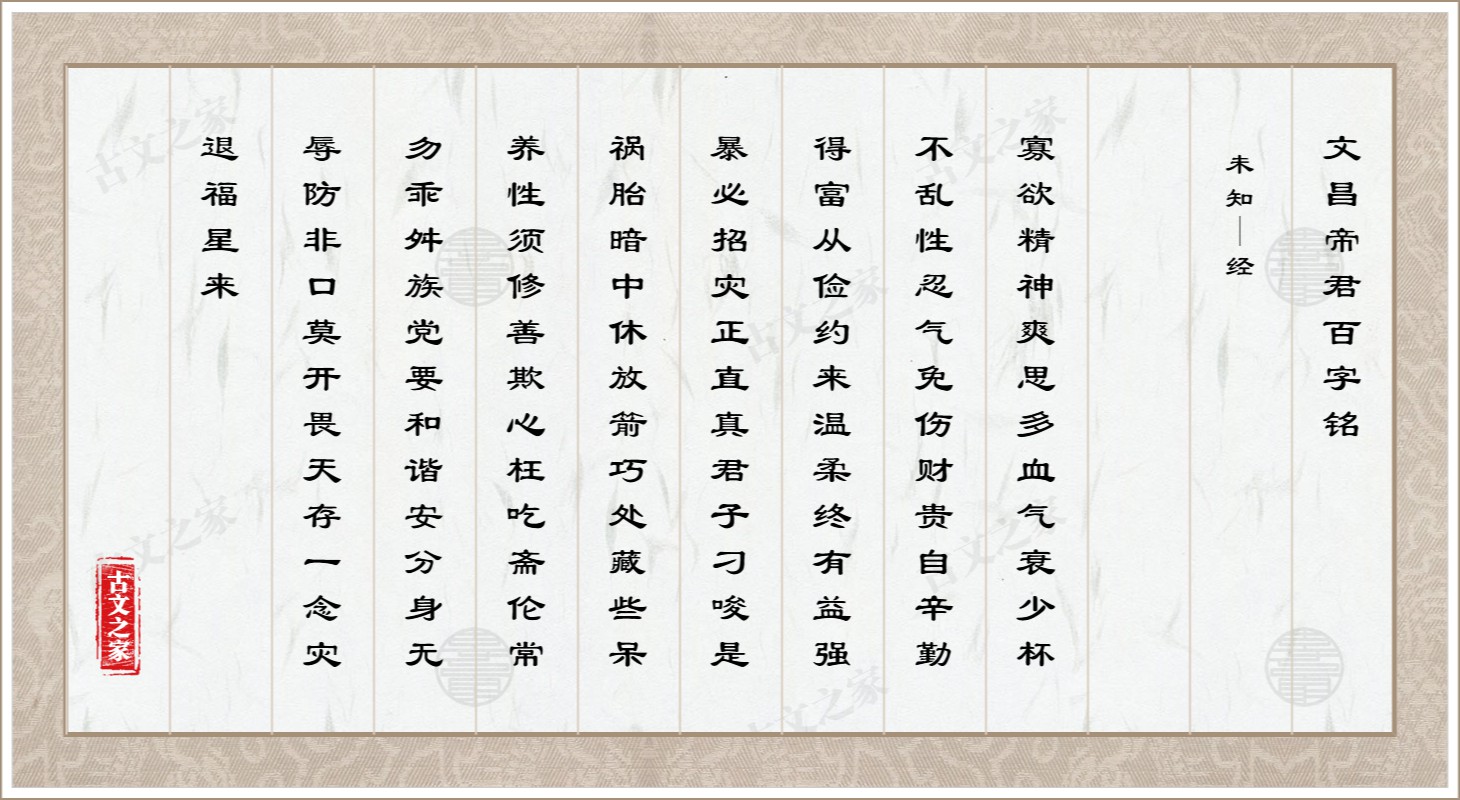 文昌帝君百字铭
未知｜经
寡欲精神爽思多血气衰少杯
不乱性忍气免伤财贵自辛勤
得富从俭约来温柔终有益强
暴必招灾正直真君子刁唆是
祸胎暗中休放箭巧处藏些呆
养性须修善欺心枉吃斋伦常
勿乖舛族党要和谐安分身无
辱防非口莫开畏天存一念灾
退福星来
古文之家
古文之家
古文之家
古文之家
古文之家
古文之家
古文之家